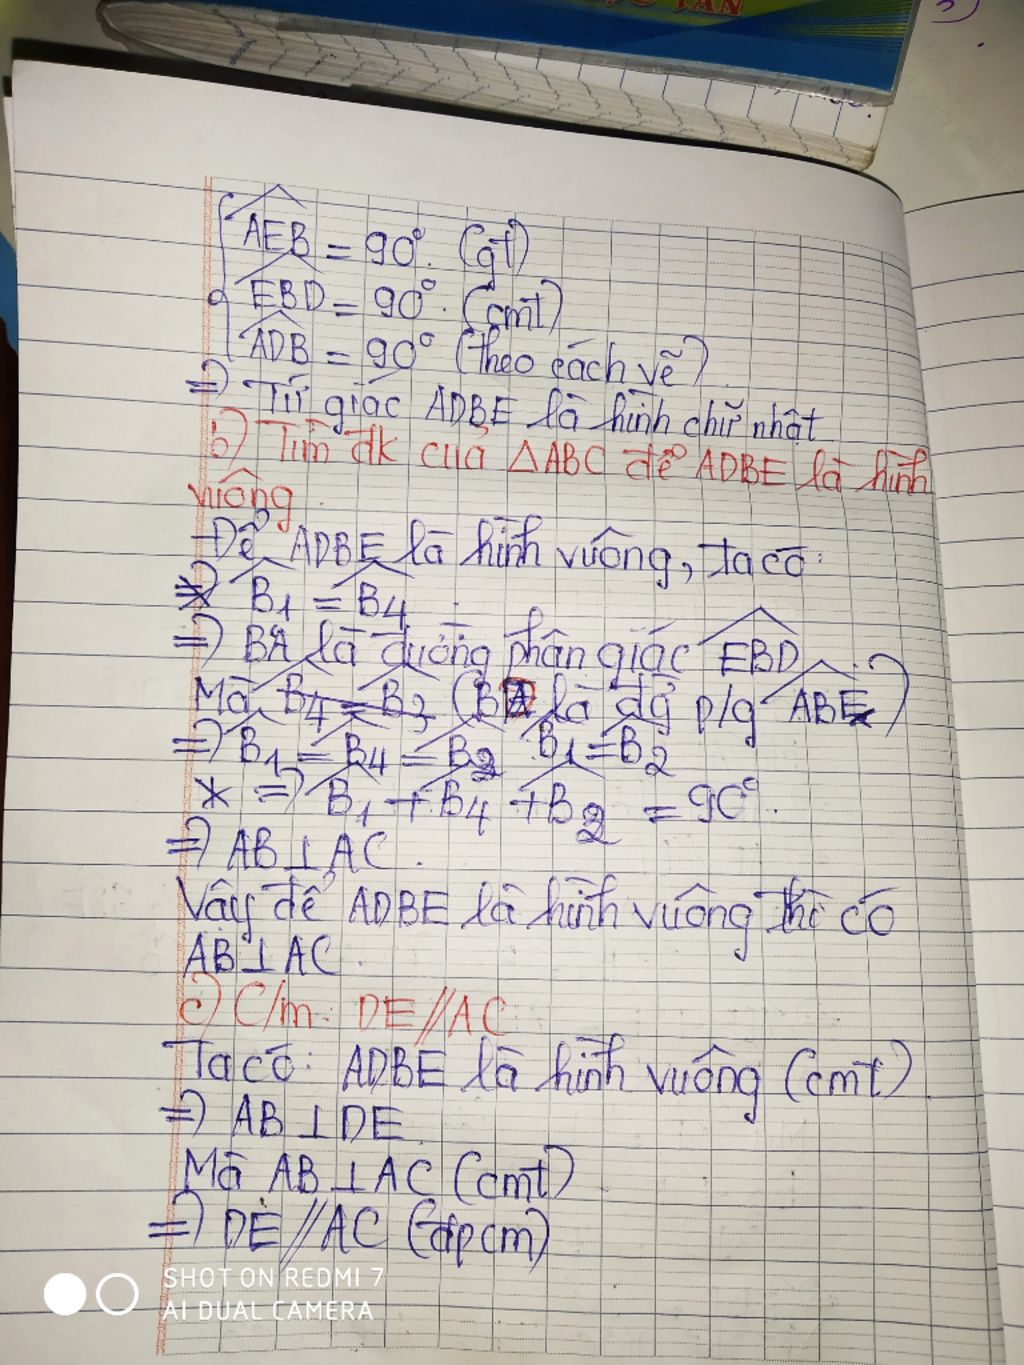 TÂN
AEB = 90°. (gt)
EBD = 90°. (cmt)
ADB = 90° (theo cách vẽ)
=> Tứ giác ADBE là hình chữ nhật
b) Tìm đk của △ABC để ADBE là hình
vuông.
Để ADBE là hình vuông, ta có:
*) B1 = B4
=> BA là đường phân giác EBD
Mà B4 = B3 (BA là đg p/g ABE)
=> B1 = B4 = B2 B1 = B2
* => B1 + B4 + B2 = 90°.
=> AB⊥AC.
Vậy để ADBE là hình vuông thì có
AB⊥AC.
c) C/m: DE//AC
Ta có: ADBE là hình vuông (cmt)
=> AB⊥DE.
Mà AB⊥AC (cmt)
=> DE//AC (đpcm)
SHOT ON REDMI 7
AI DUAL CAMERA